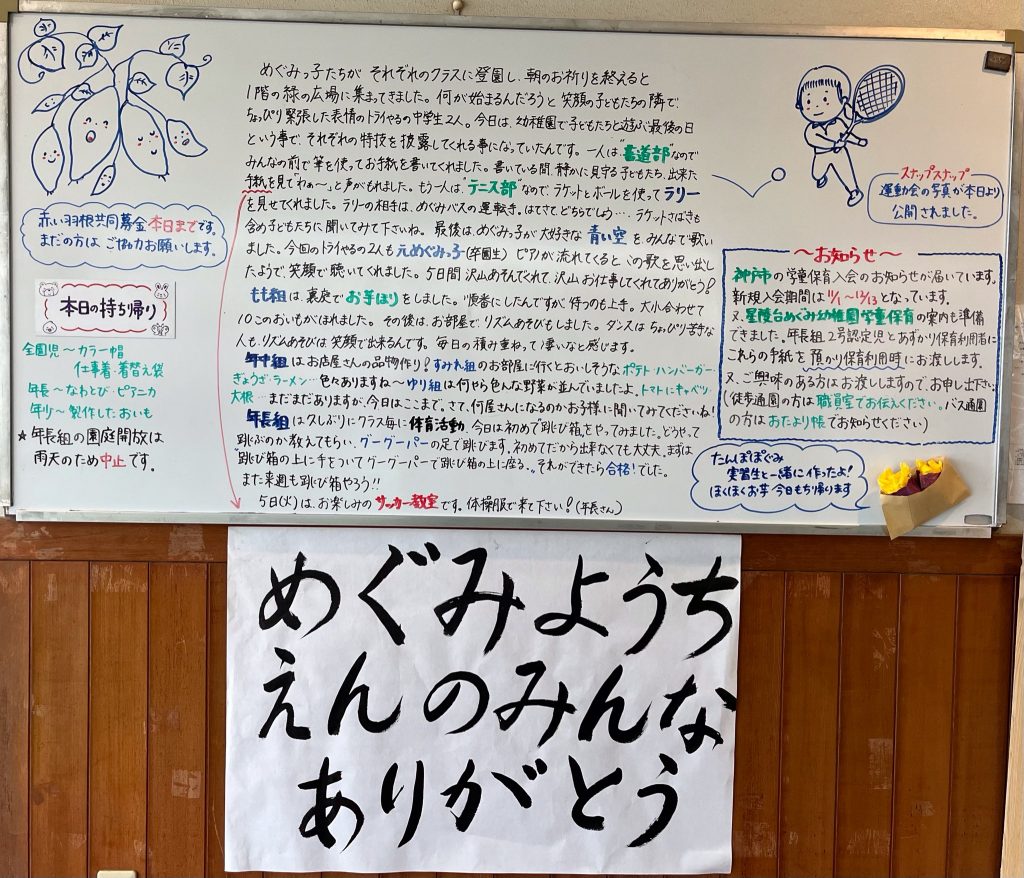 めぐみっ子たちが それぞれのクラスに登園し、朝のお祈りを終えると
1階の緑の広場に集まってきました。何が始まるんだろうと笑顔の子どもたちの隣で、
ちょっぴり緊張した表情のトライやるの中学生2人。今日は、幼稚園で子どもたちと遊ぶ最後の日
という事で、それぞれの特技を披露してくれる事になっていたんです。一人は"書道部"なので
みんなの前で筆を使ってお手紙を書いてくれました。書いている間、静かに見守る子どもたち、出来た
手紙を見て"わぁ〜"と声がもれました。もう一人は"テニス部"なので、ラケットとボールを使ってラリー
を見せてくれました。ラリーの相手は、めぐみバスの運転手。はてさて、どちらでしょう…。ラケットさばきも
含め子どもたちに聞いてみて下さいね。最後は、めぐみっ子が大好きな 青い空 を、みんなで歌い
ました。今回のトライやるの2人も 元めぐみっ子(卒園生) ピアノが流れてくると、この歌を思い出し
たようで、笑顔で聴いてくれました。5日間 沢山あそんでくれて、沢山お仕事してくれてありがとう!
もも組は、裏庭でお芋ほりをしました。順番にしたんですが、待つのも上手。大小合わせて
10このおいもがほれました。その後は、お部屋で、リズムあそびもしました。ダンスはちょっぴり苦手な
人も、リズムあそびは笑顔で出来るんです。毎日の積み重ねって凄いなと感じます。
年中組はお店屋さんの品物作り!すみれ組のお部屋に行くとおいしそうなポテト・ハンバーガー・
ぎょうざ・ラーメン…色々ありますね〜ゆり組は何やら色んな野菜が並んでいましたよ。トマトにキャベツ・
大根…まだまだありますが、今日はここまで。さて、何屋さんになるのかお子様に聞いてみてくださいね!
年長組は久しぶりにクラス毎に体育活動、今日は初めて"跳び箱"をやってみました。どうやって
跳ぶのか教えてもらい、グーグーパーの足で跳びます。初めてだから出来なくても大丈夫。まずは
"跳び箱の上に手をついてグーグーパーで跳び箱の上に座る"。それができたら合格!でした。
また来週も跳び箱やろう!!
5日(火)は、お楽しみのサッカー教室です。体操服で来て下さい!(年長さん)
赤い羽根共同募金 本日までです。
まだの方は ご協力お願いします。
本日の持ち帰り
全園児〜カラー帽
仕事着・着替え袋
年長〜なわとび・ピアニカ
年少〜製作したおいも
★年長組の園庭開放は
雨天のため中止です。
スナップスナップ
運動会の写真が本日より
公開されました。
〜お知らせ〜
神戸市の学童保育入会のお知らせが届いています。
新規入会期間は 11/1〜12/13となっています。
又、星陵台めぐみ幼稚園学童保育の案内も準備
できました。年長組、2号認定児とあずかり保育利用者に
これらの手紙を預かり保育利用時にお渡します。
又、ご興味のある方はお渡しますので、お申し出下さい。
(徒歩通園の方は職員室でお伝えください。バス通園
の方は おたより帳でお知らせください)
たんぽぽぐみ
実習生と一緒に作ったよ!
ほくほくお芋 今日もち帰ります
めぐみようち
えんのみんな
ありがとう